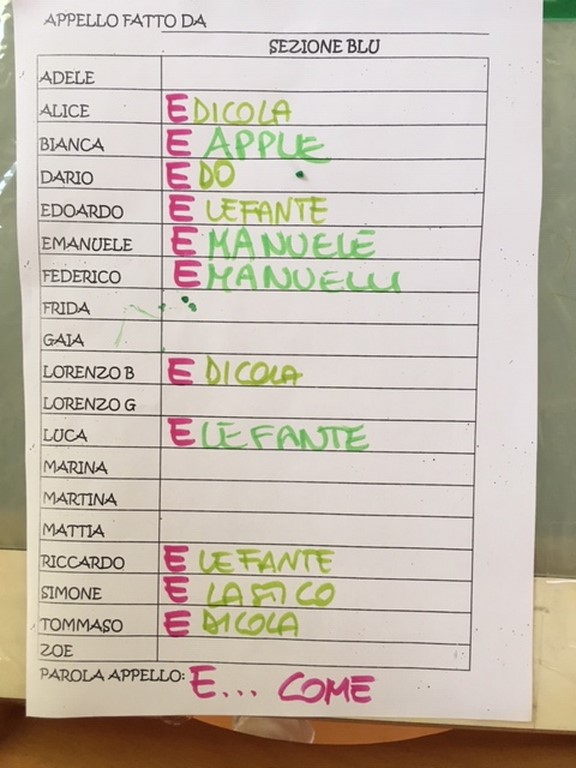 APPELLO FATTO DA
SEZIONE BLU
ADELE
ALICE EDICOLA
BIANCA E APPLE
DARIO E DO
EDOARDO E LEFANTE
EMANUELE E MANUELE
FEDERICO E MANUELLI
FRIDA
GAIA
LORENZO B E DICOLA
LORENZO G
LUCA ELEFANTE
MARINA
MARTINA
MATTIA
RICCARDO E LEFANTE
SIMONE E LASTICO
TOMMASO E DICOLA
ZOE
PAROLA APPELLO: E... COME